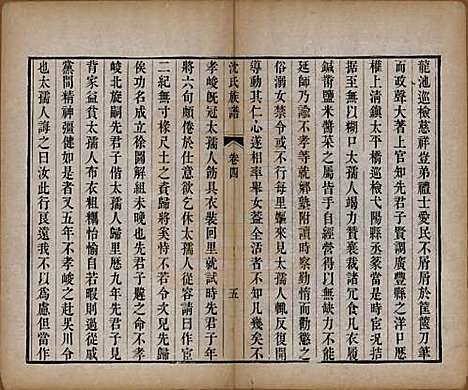 龍池巡檢慈祥豈弟禮士愛民不屑屑於筐篋刀筆
而政聲大著上官知先君子賢調廣豐縣之洋口歷
權上清鎮太平橋巡檢弋陽縣丞篆當是時宦況拮
据至無以糊口太孺人竭力贊襄裁諸冗食凡衣履
鍼黹鹽米醬菜之屬皆手自經營得以無缺力不能
延師乃諭不孝等就鄉塾附讀時察勤惰而董戒焉
俗溺女禁令不行每里嫗來見太孺人輒反復開
導動其仁心遂相率舉女蓋全活者不知凡幾矣不
沈氏族譜 卷四 五
孝峻既冠太孺人飭具衣裝回里就試時先君子年
將六旬偃蹇於仕意欲乞休太孺人從容請曰作宦
二紀無寸椽尺土之資歸將奚恃不若令次兒侍次
俟功名成立徐圖解組未晚也先君子韙之命不孝
峻北旋嗣先君子偕太孺人歸里歷九年先君子見
背家益貧太孺人布衣粗糲怡愉自若暇則過從
黨間精神彊健如昔又五年不孝峻之赴吳川令任
也太孺人誨之曰汝此行良遠我不